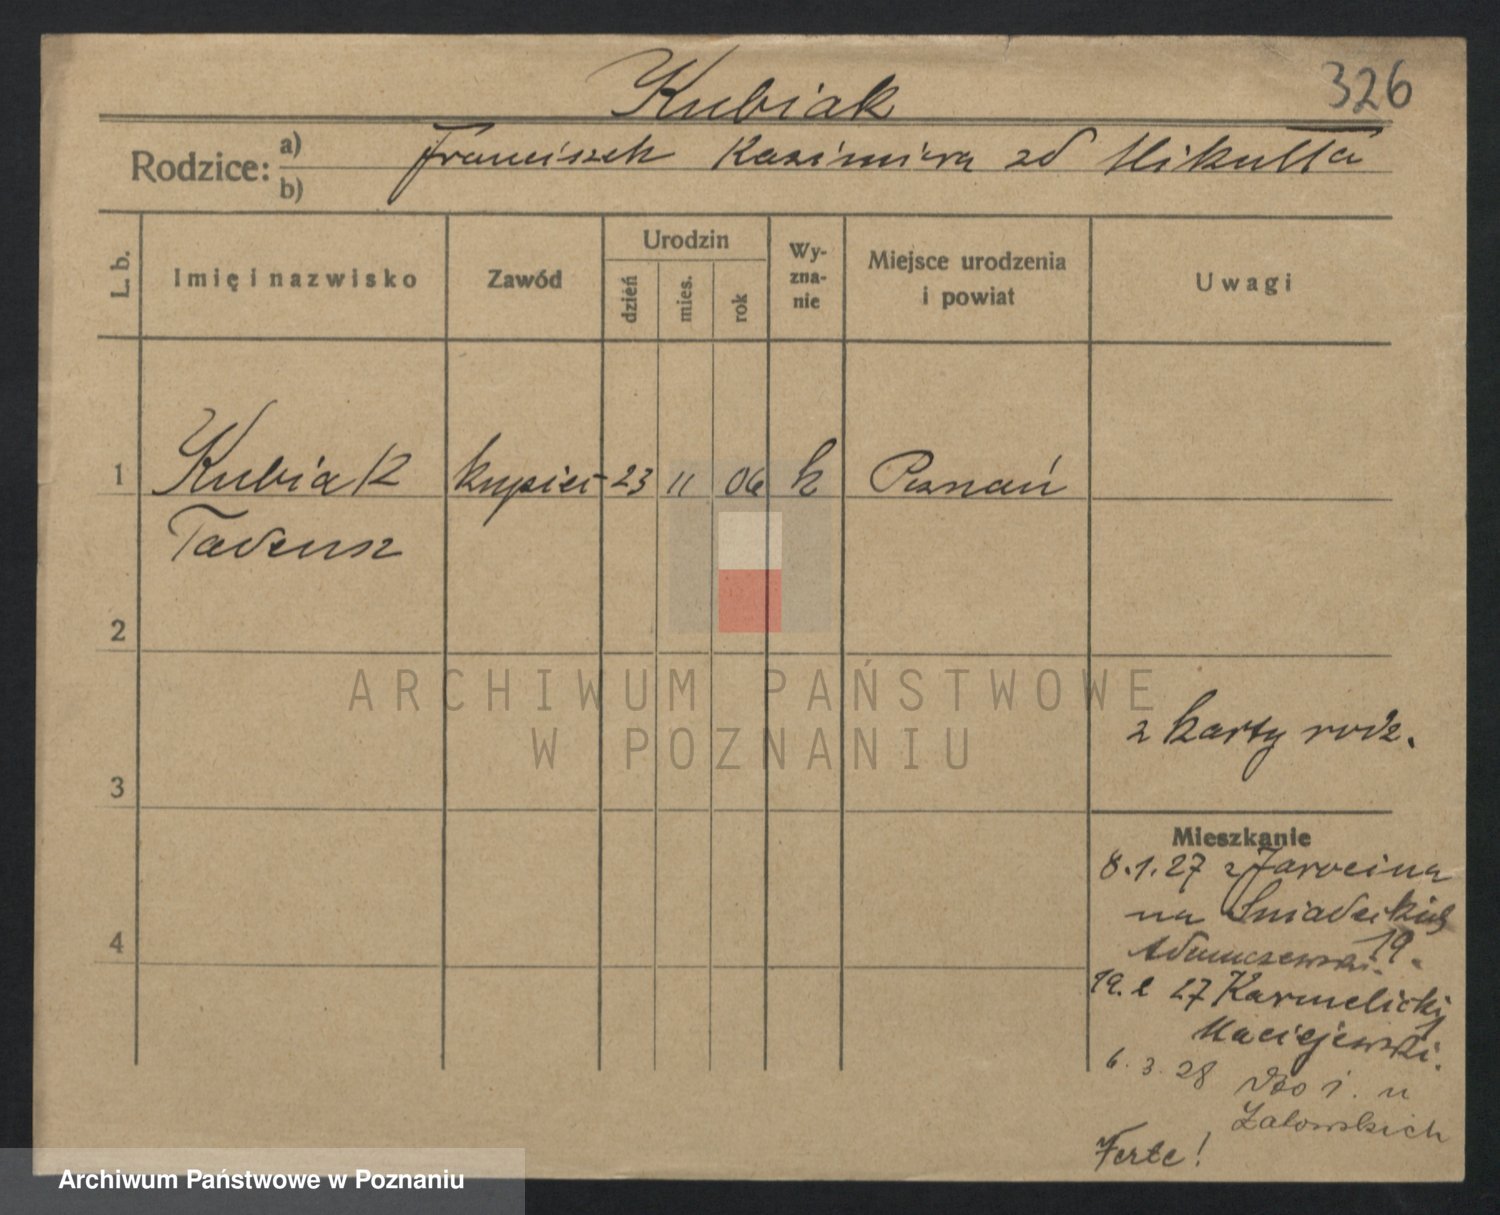 Kubiak
326
Rodzice: a) Franciszek Kazimiera zd Mikułła
b)
L. b.
Imię i nazwisko
Zawód
Urodzin
dzień
mies.
rok
Wy-
zna-
nie
Miejsce urodzenia
i powiat
Uwagi
1 Kubiak kupiec 23 11 06 k Poznań
Tadeusz
2
3
4
z karty rodz.
Mieszkanie
8.1.27 z Jarocina
na Śniadeckich
19.
Adamczewski.
19. 2 27 Karmelicki
1
Maciejewski.
6. 3. 28 u
Żalowskich
Ferte!
ARCHIWUM PAŃSTWOWE
W POZNANIU
Archiwum Państwowe w Poznaniu